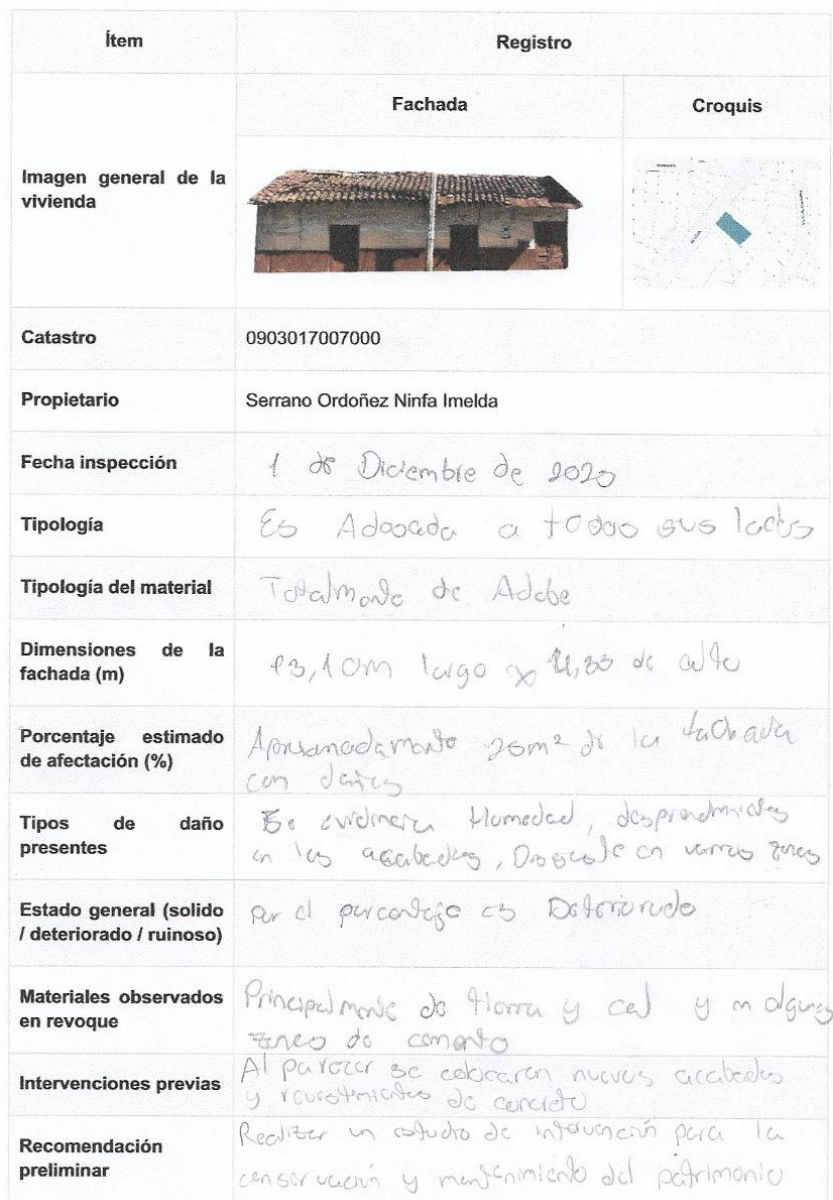 Ítem
Registro
Imagen general de la
vivienda
Fachada
Croquis
Catastro
0903017007000
Propietario
Serrano Ordoñez Ninfa Imelda
Fecha inspección
1 de Diciembre de 2020
Tipología
Es Adosada a todos sus lados
Tipología del material
Totalmente de Adobe
Dimensiones de la
fachada (m)
largo x 4,33 de alto
Porcentaje estimado
de afectación (%)
Aproximadamente 25m² de la fachada
con daños
Tipos de daño
presentes
Se evidencia Humedad, desprendimientos
en los acabados, Desgaste en varias zonas
Estado general (solido
/ deteriorado / ruinoso)
por el porcentaje es Deteriorado
Materiales observados
en revoque
Principalmente de tierra y cal y en algunas
zonas de cemento
Intervenciones previas
Al parecer se colocaron nuevos acabados
y revestimientos de concreto
Recomendación
preliminar
Realizar un estudio de intervención para la
conservación y mantenimiento del patrimonio